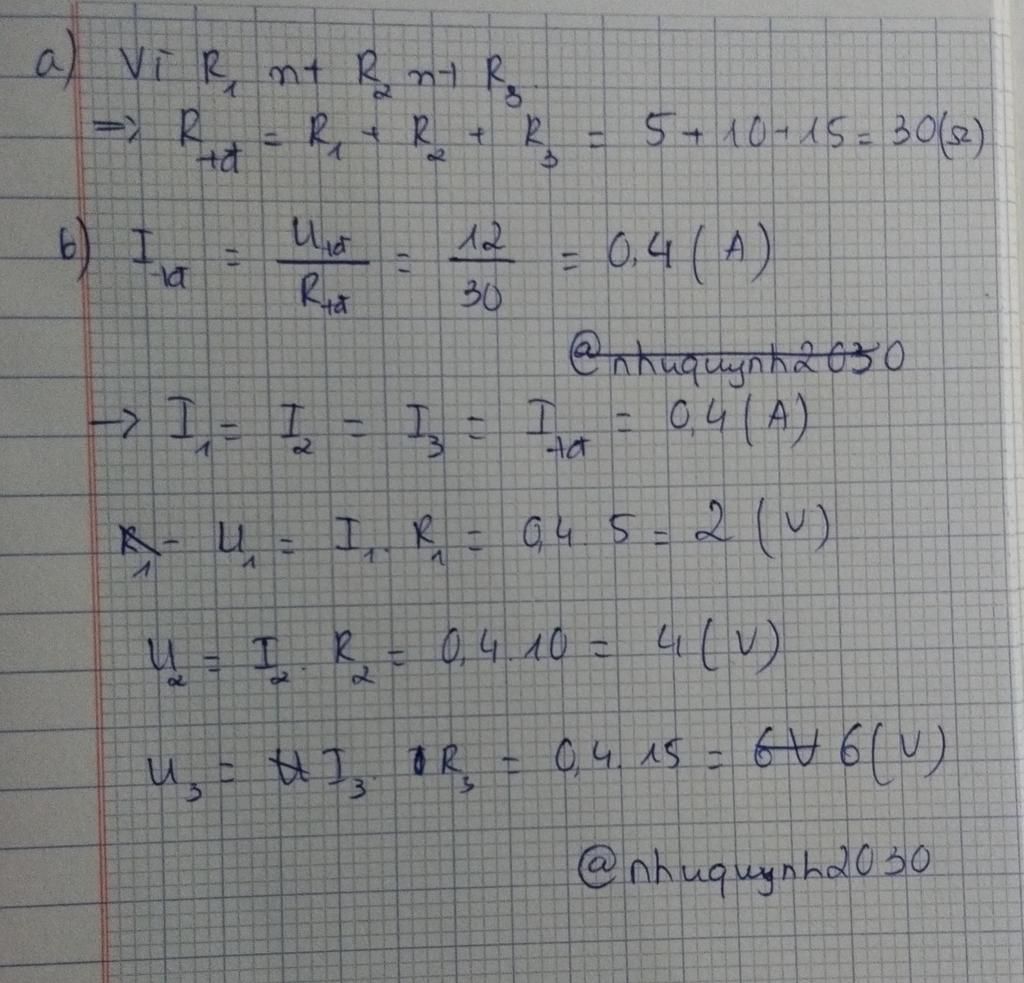 a) Vì R₁ nt R₂ nt R₃.
=> R_tđ = R₁ + R₂ + R₃ = 5 + 10 + 15 = 30 (Ω)
b) I_tđ = U_tđ / R_tđ = 12 / 30 = 0,4 (A)
@nhuquynh2030
→ I₁ = I₂ = I₃ = I_tđ = 0,4 (A)
R₁ - U₁ = I₁ . R₁ = 0,4 . 5 = 2 (V)
U₂ = I₂ . R₂ = 0,4 . 10 = 4 (V)
U₃ = U I₃ . R₃ = 0,4 . 15 = 6V 6 (V)
@nhuquynh2030